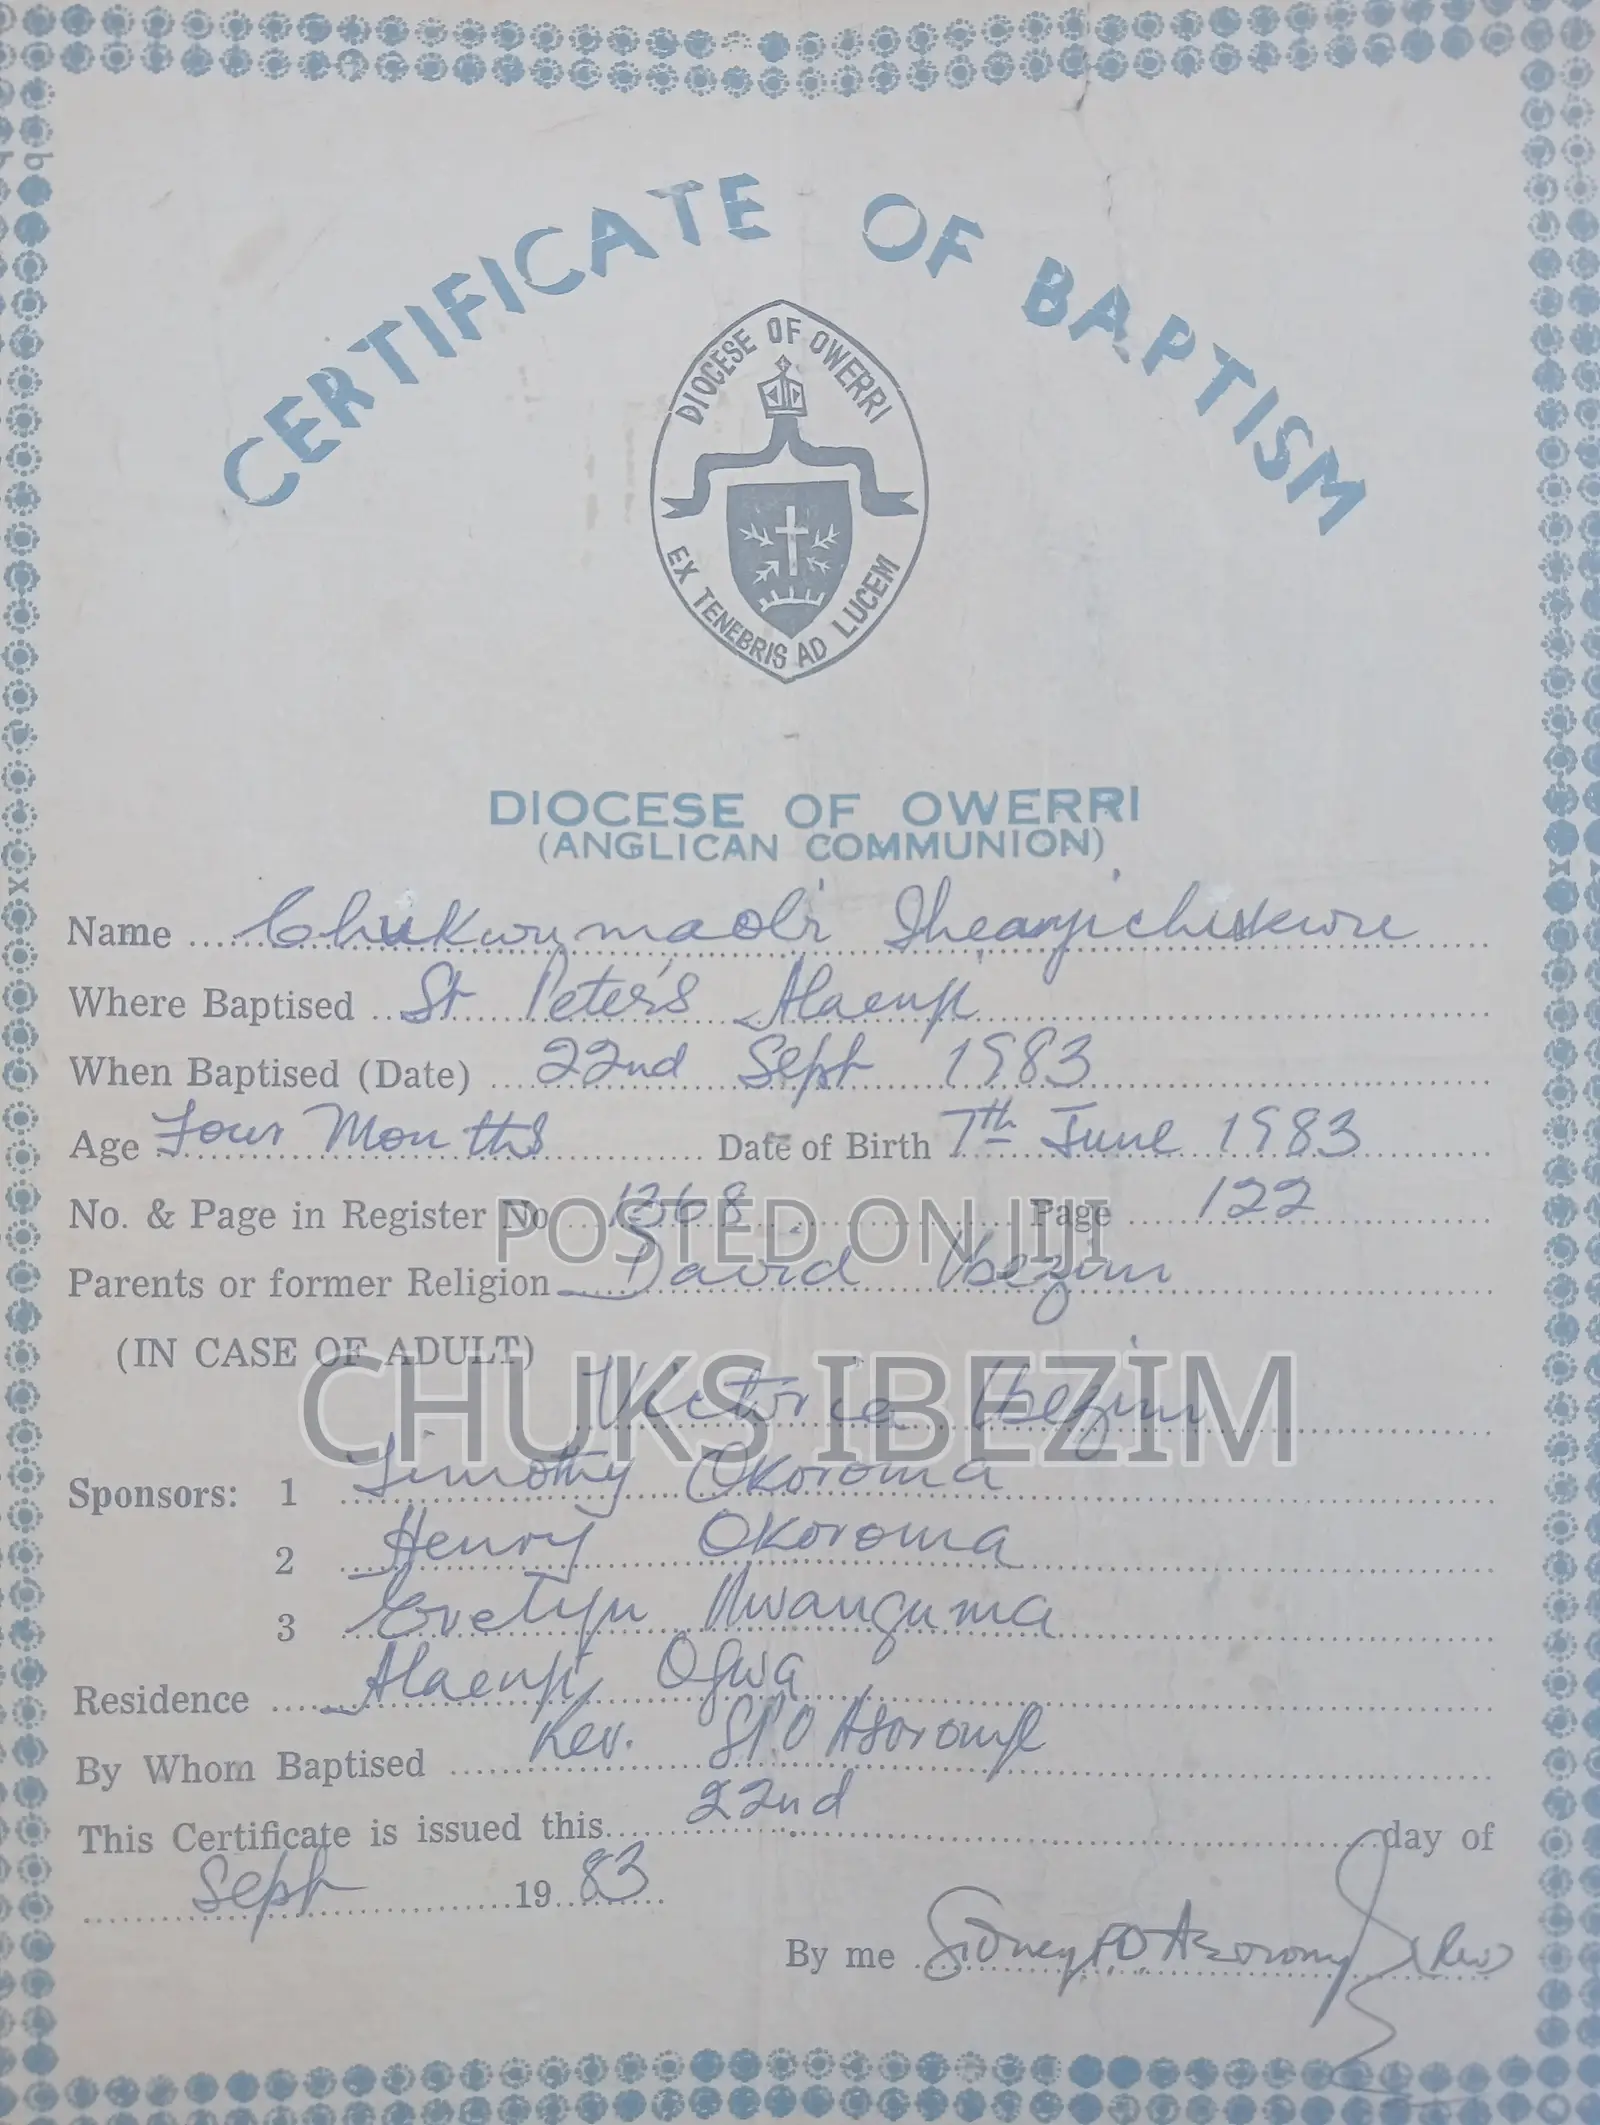 CERTIFICATE OF BAPTISM
DIOCESE OF OWERRI
EX TENEBRIS AD LUCEM
DIOCESE OF OWERRI
(ANGLICAN COMMUNION)
Name Chukwumaobi Iheanyichukwu
Where Baptised St Peter's Alaenyi
When Baptised (Date) 22nd Sept 1983
Age Four Months Date of Birth 7th June 1983
No. & Page in Register No 1368 Page 122
POSTED ON JIJI
Parents or former Religion David Ibezim
(IN CASE OF ADULT)
CHUKS IBEZIM
Victoria Ibezim
Sponsors: 1 Timothy Okoroma
2 Henry Okoroma
3 Evelyn Nwanguma
Residence Alaenyi Ogwa
By Whom Baptised Rev. S.P.O Asoronye
This Certificate is issued this 22nd day of
Sept 19 83
By me Sidney P.O (Rev)